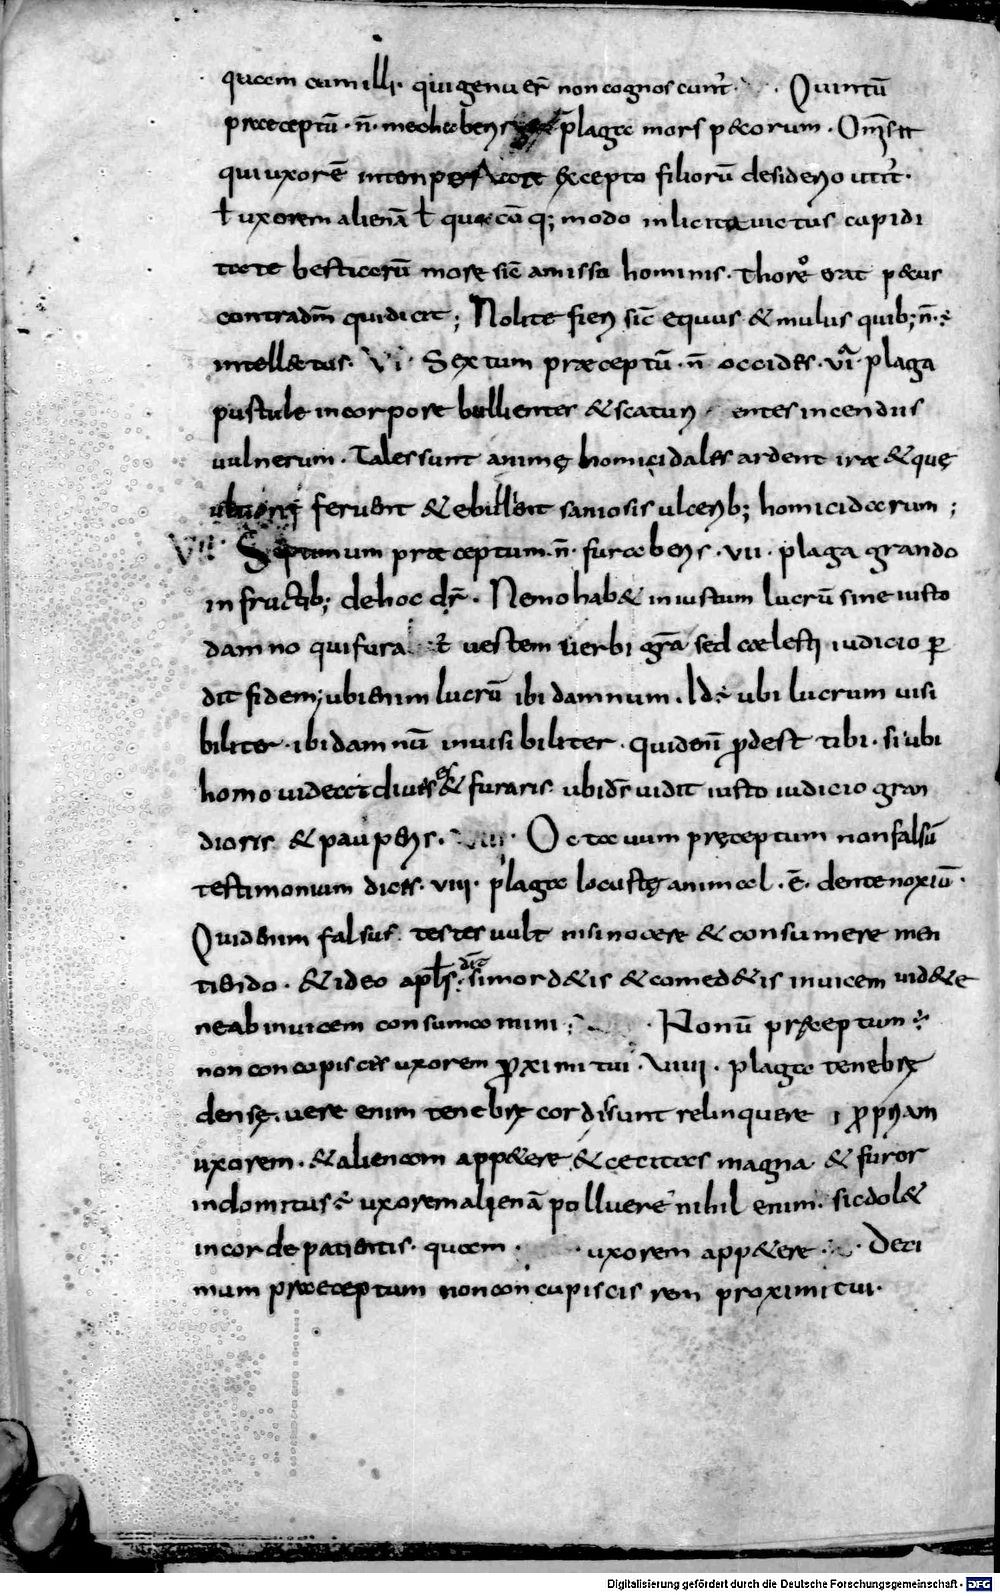 quam cum illi · qui genuer̄ non cognoscunt̃ · Quintū
preceptū · n̄ · mechaberis plaga mors pecorum · Om̄s
qui uxorē excepto filiorū desiderio utit̃ ·
ł uxorem alienā ł quacūq; modo inlicita uictus cupidi
tate besticarū more sic̄ amissa hominis · thoro erat peius
contradm̄ quidicit ; Nolite fieri sic̄ equus & mulus quib; n̄ ÷
intellectus · VI · Sextum præceptū · n̄ occides · VIa · plaga
pustule incorpore bullientes & scaturi entes incendiis
uulnerum · Tales sunt animę homicidales ardent iræ & quę
feruent & ebullent saniosis ulcerib; homicidarum ;
VII · Septimum præceptum · n̄ · furaberis · VII · plaga grando
infructib; dehoc dr̄ · Nemo hab& iniustum lucrū sine iusto
damno qui fura t̃ uestem uerbi gr̄a sed cælesti iudicio p̱
dit fidem; ubi enim lucrū ibi damnum · Id ÷ ubi lucrum uisi
biliter · ibi damnū inuisibiliter · quid enī p̱dest tibi · si ubi
homo uidet diues es & furaris ubi ds̄ uidit iusto iudicio gran
dioris & pauperis · VIII · Octauum pręceptum non falsū
testimonium dices · VIII · plaga locustę animal · ē · dente noxiū ·
Quid enim falsus testes uult nisi nocere & consumere men
tiendo · & ideo apłs dic̄ si mordetis & comedetis inuicem uidete
ne ab inuicem consumamini ; · Nonū pręceptum ÷
non concupisces uxorem p̱ximi tui · VIIII · plaga tenebrę
densę · uere enim tenebrę cordis sunt relinquere p̱priam
uxorem · & alienam appetere & cecitas magna & furor
indomitus ÷ uxorem alienā polluere nihil enim · sic dolet
in corde patientis · quam · · uxorem appetere · · Deci
mum præceptum non concupiscis rem proximi tui ·
Digitalisierung gefördert durch die Deutsche Forschungsgemeinschaft - DFG